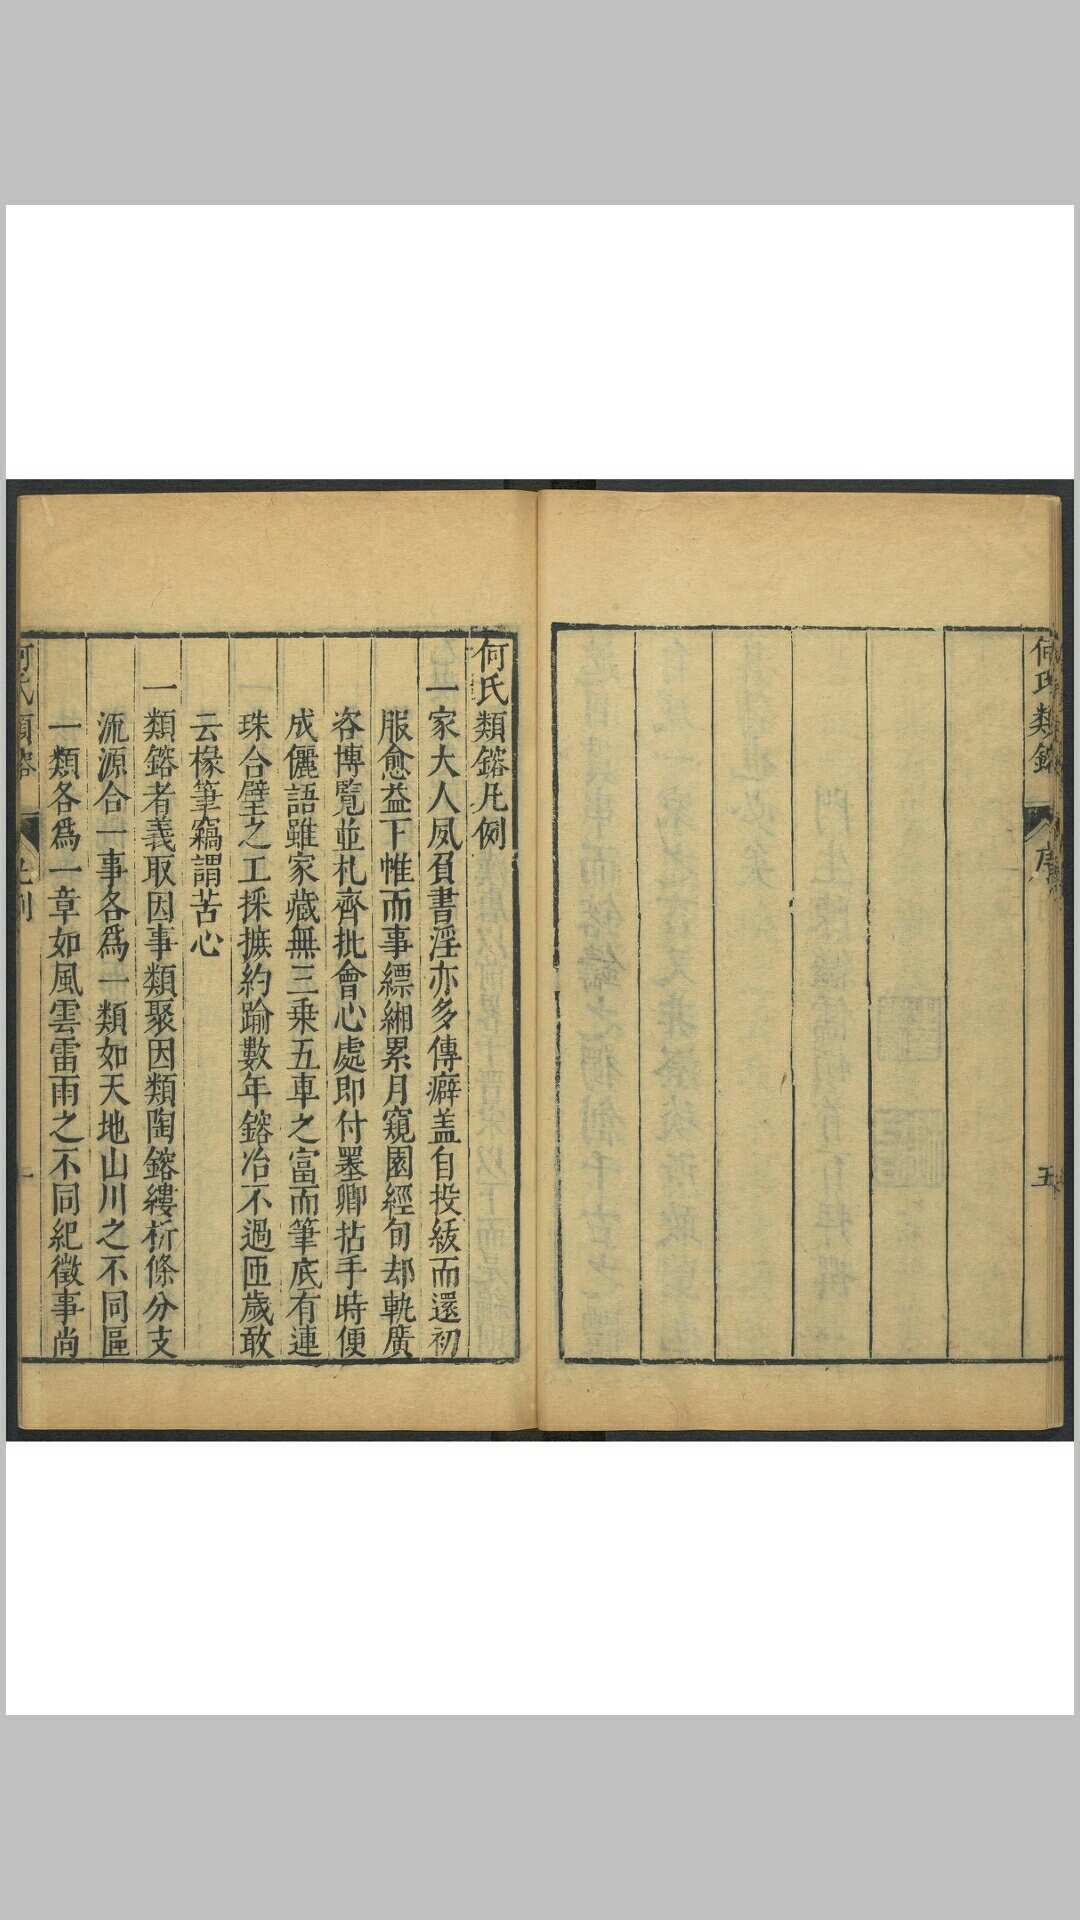 何氏類鎔
序
五
何氏類鎔凡例
一家大人夙負書淫亦多傳癖盖自投紱而還初
服愈益下帷而事縹緗累月窺園經旬却軌廣
咨博覽並札齊批會心處即付墨卿拈手時便
成儷語雖家藏無三乗五車之富而筆底有連
珠合璧之工採摭約踰數年鎔冶不過匝歲敢
云椽筆竊謂苦心
一類鎔者義取因事類聚因類陶鎔縷析條分支
流源合一事各爲一類如天地山川之不同區
一類各爲一章如風雲雷雨之不同紀徵事尚
何氏類鎔
凡例
一